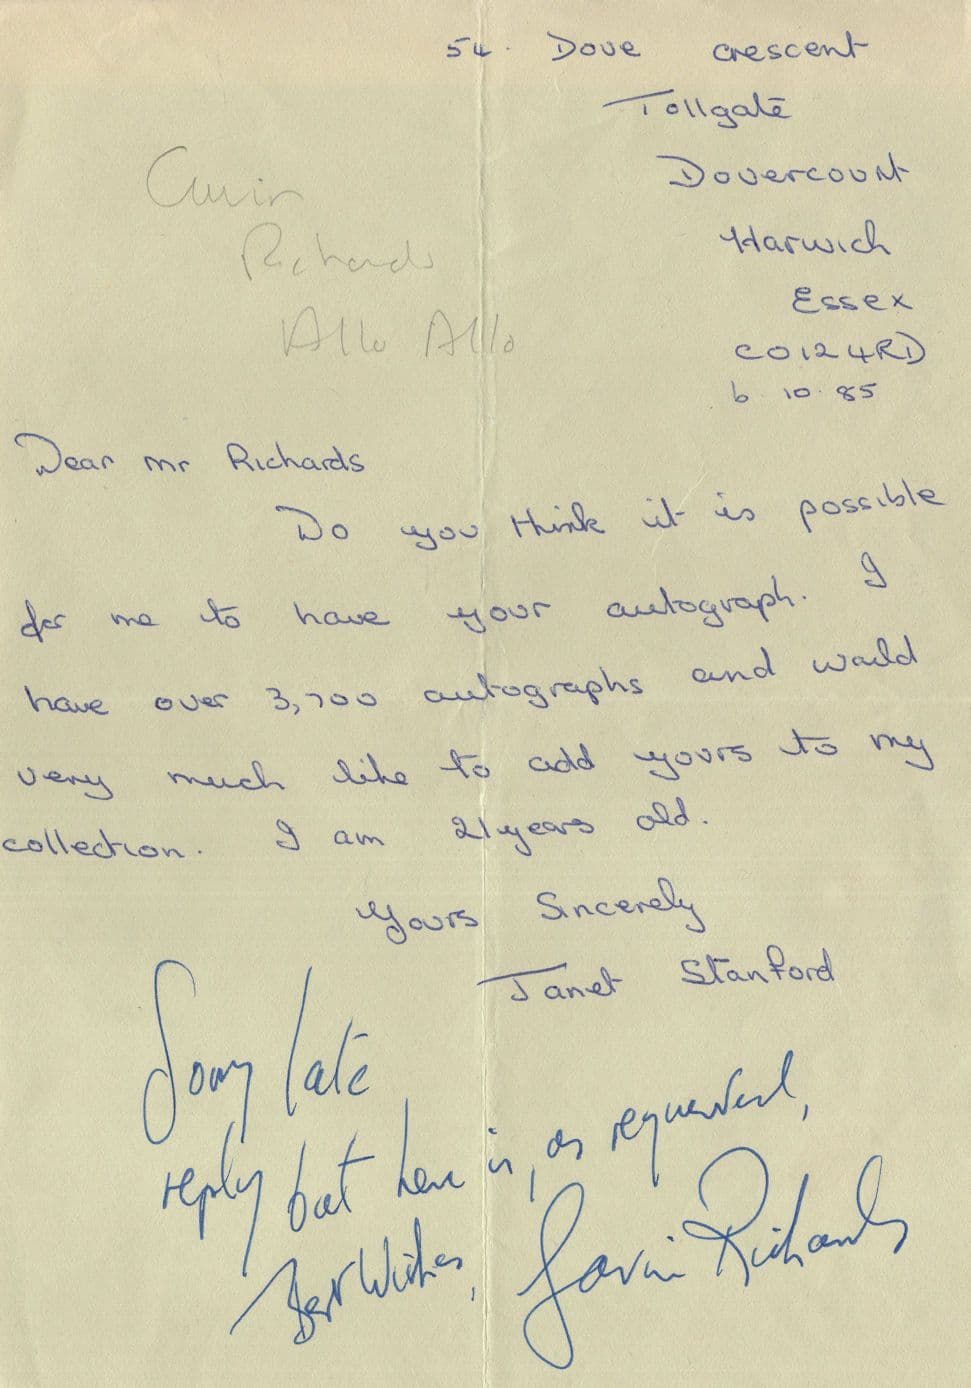 54. Dove crescent
Tollgate
Dovercourt
Harwich
Essex
CO12 4RD
6.10.85
Gavin
Richards
Allo Allo
Dear Mr Richards
Do you think it is possible
for me to have your autograph. I
have over 3,700 autographs and would
very much like to add yours to my
collection. I am 21 years old.
Yours Sincerely
Janet Stanford
Sorry late
reply but here is, as requested,
Best Wishes,
Gavin Richards